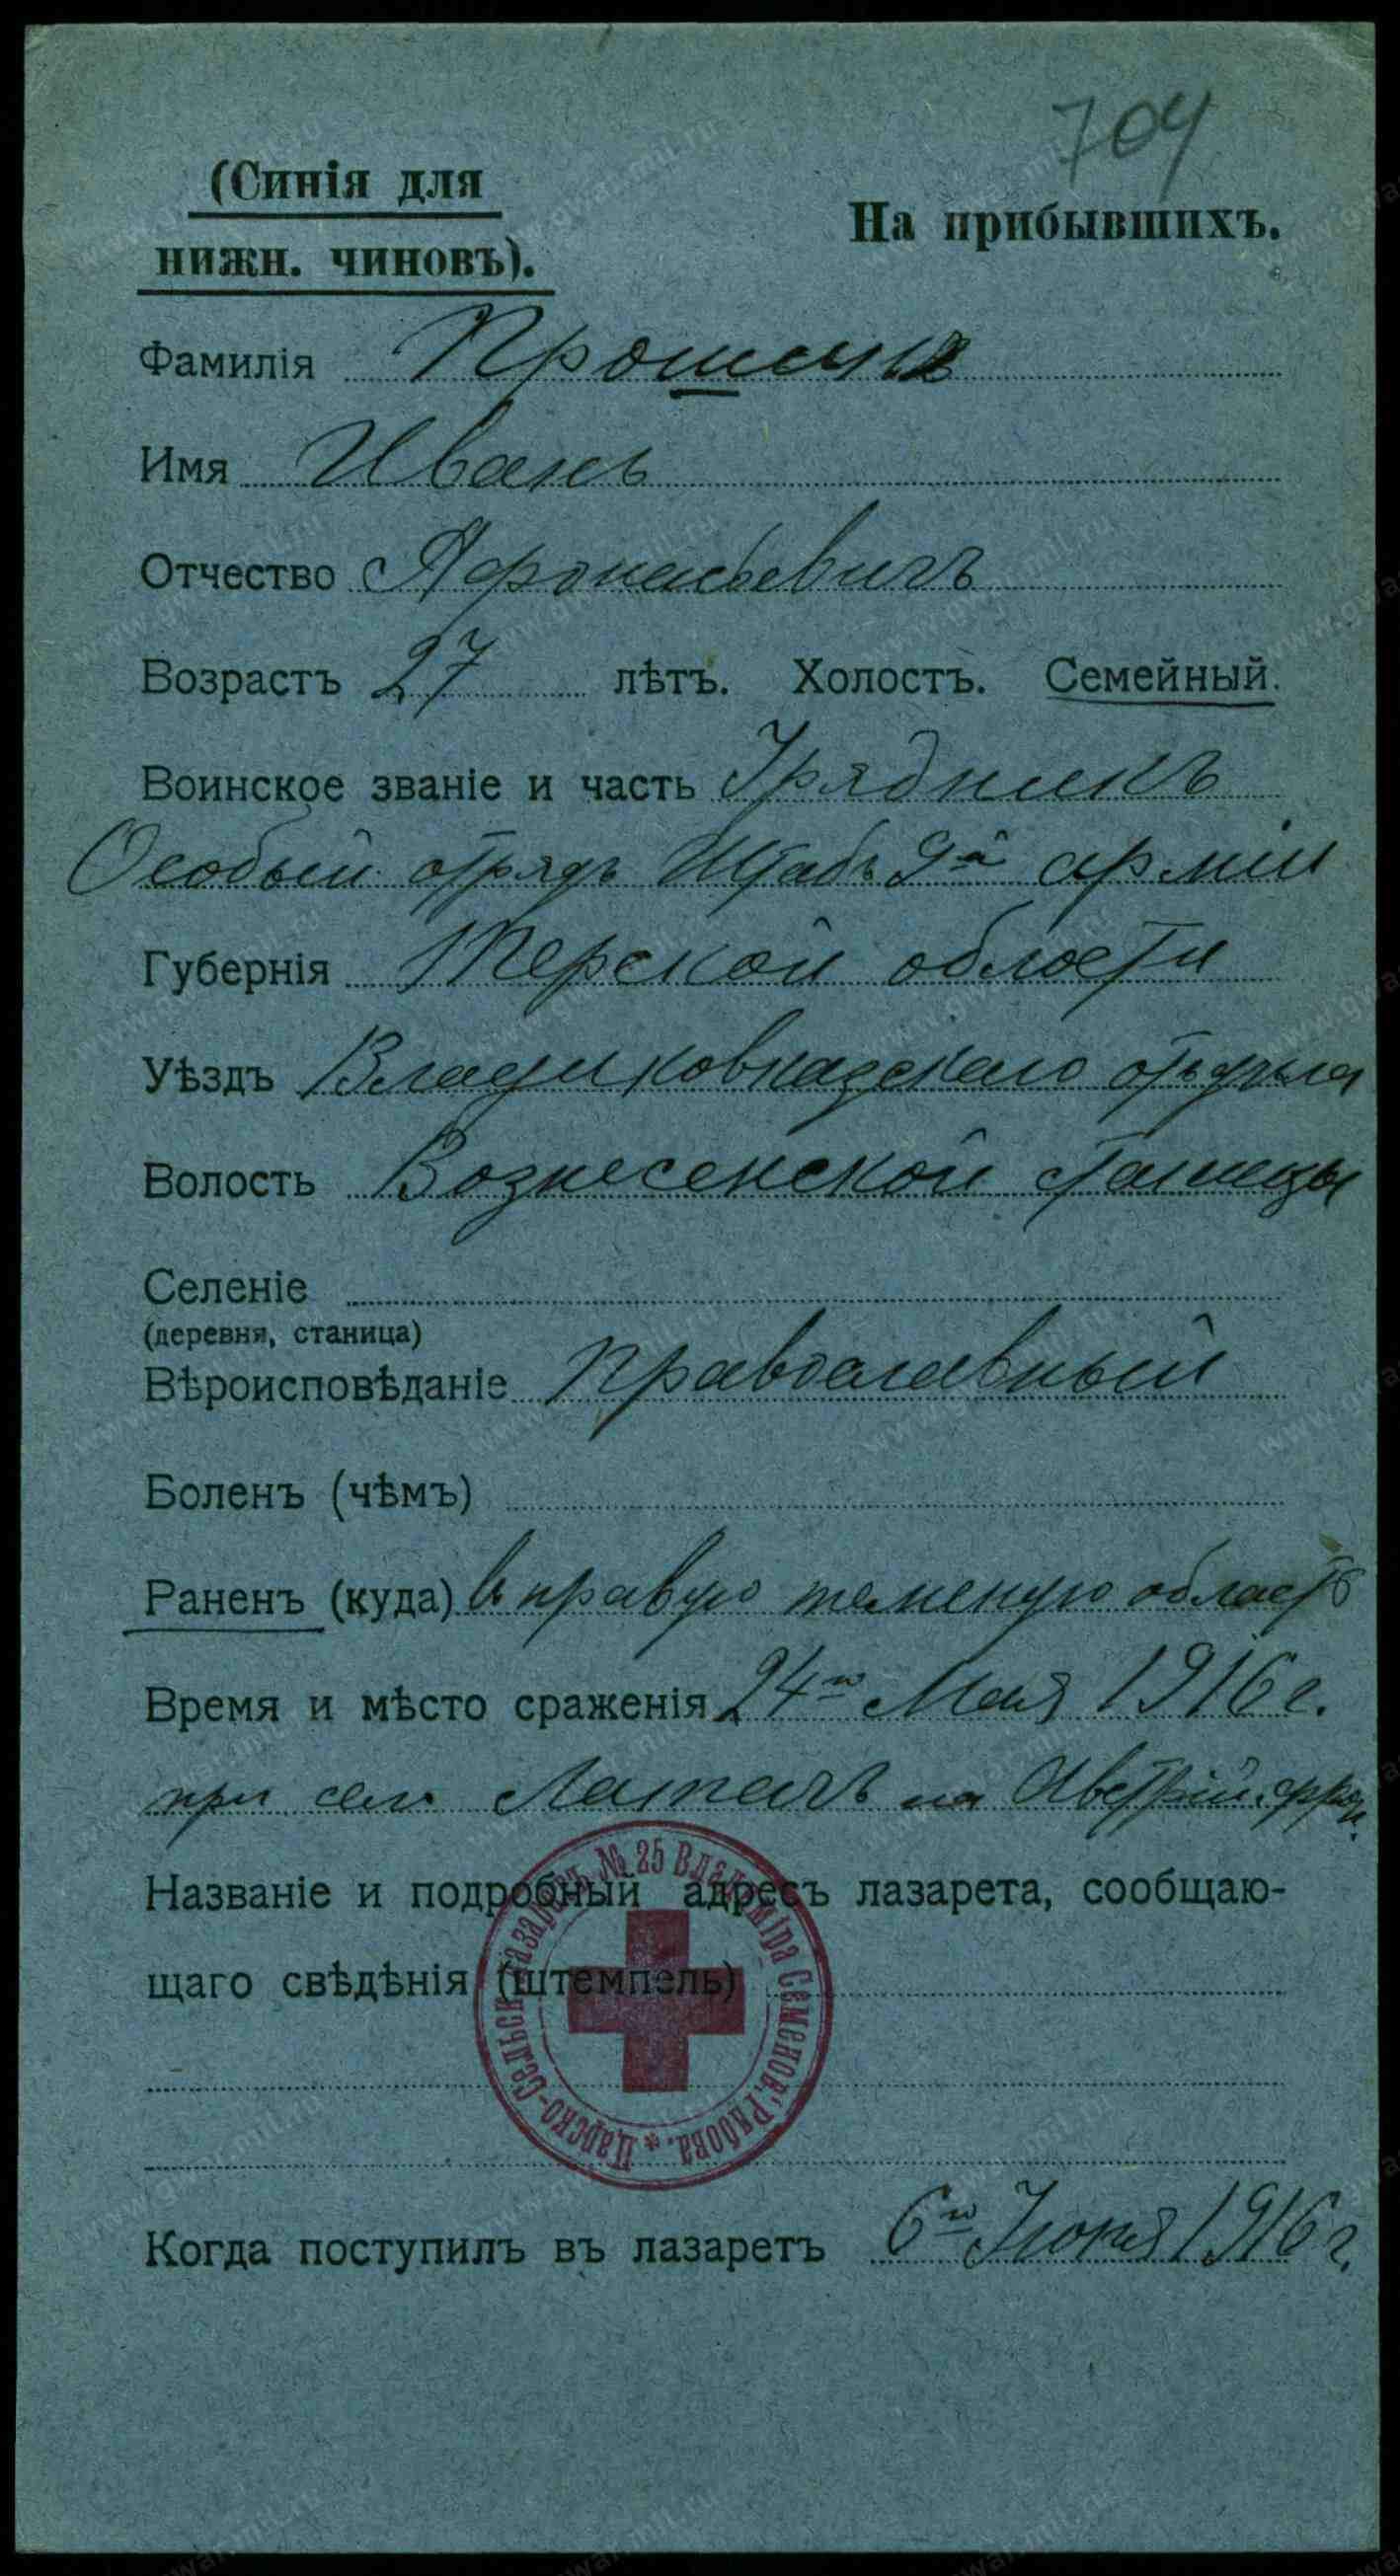 704
(Синія для
нижн. чиновъ).
На прибывшихъ.
Фамилія Прошинъ
Имя Иванъ
Отчество Афонасьевичъ
Возрастъ 27 лѣтъ. Холостъ. Семейный.
Воинское званіе и часть Урядникъ
Особый отрядъ Штабъ 9й арміи
Губернія Терской области
Уѣздъ Владиковказскаго отдѣла
Волость Вознесенской станицы
Селеніе
(деревня, станица)
Вѣроисповѣданіе православный
Боленъ (чѣмъ)
Раненъ (куда) в правую теменую область
Время и мѣсто сраженія 24го Мая 1916 г.
при селѣ на Австрій. фрон.
Названіе и подробный адресъ лазарета, сообщаю-
щаго свѣдѣнія (штемпель)
Царско-Сельск. лазаретъ № 25 Владиміра Семенов. Рябова. *
Когда поступилъ въ лазаретъ 6го Іюня 1916 г.